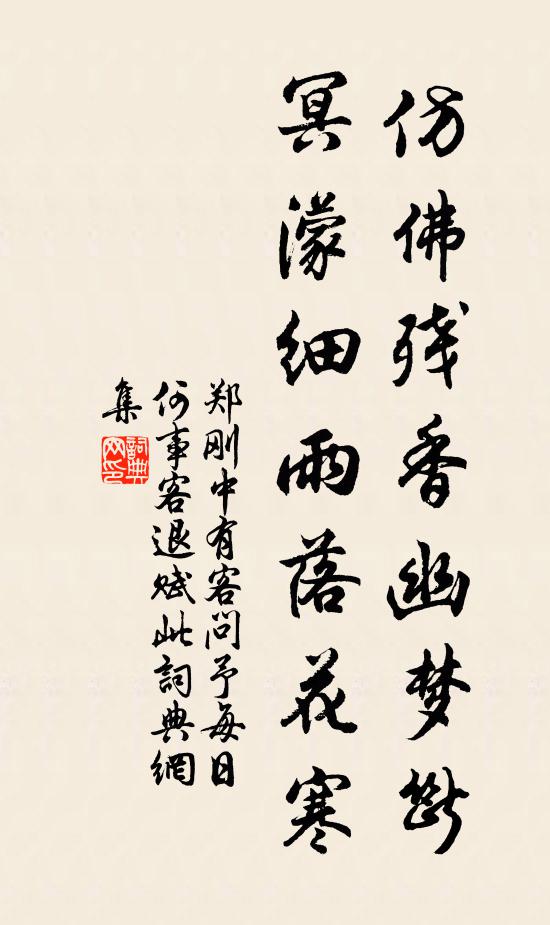 仿佛残香幽梦断
冥濛细雨落花寒
郑刚中有客问予每日
何事客退赋此詞典網
集
詞典
网印